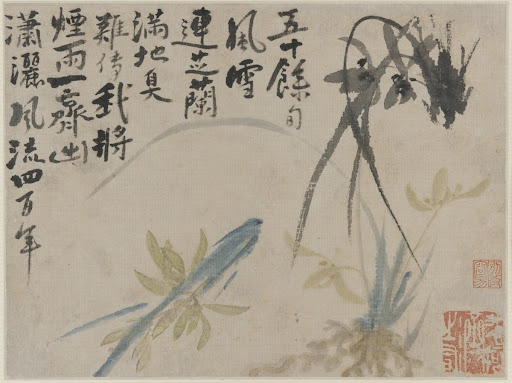 五十餘旬
風雪
連芝蘭
滿地臭
難傳我將
煙雨一齊出
瀟灑風流四百年